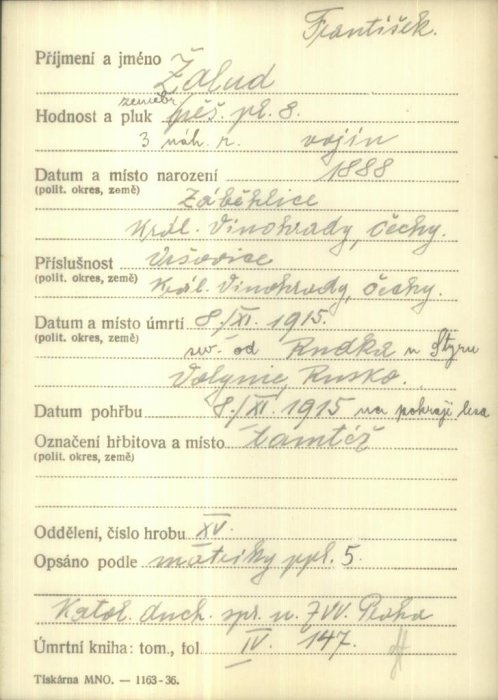 František.
Příjmení a jméno Žalud
zeměbr.
Hodnost a pluk pěš. pl. 8.
3 náh. r. vojín
Datum a místo narození 1888
(polit. okres, země) Záběhlice
Král. Vinohrady, Čechy.
Příslušnost Vršovice
(polit. okres, země) Král. Vinohrady, Čechy.
Datum a místo úmrtí 8./XI. 1915.
(polit. okres, země) sv. od Rudka u Styru
Volynie, Rusko.
Datum pohřbu 8./XI. 1915 na pokraji lesa
Označení hřbitova a místo tamtéž
(polit. okres, země)
Oddělení, číslo hrobu XV.
Opsáno podle matriky ppl. 5.
Katol. duch. spr. u ZVV. Praha
Úmrtní kniha: tom., fol. IV. 147.
Tiskárna MNO. — 1163-36.